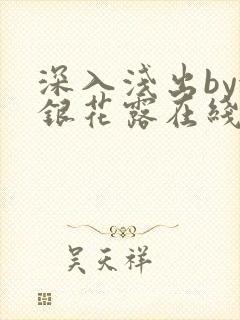 深入浅出by
銀花露在綫
吴天祥